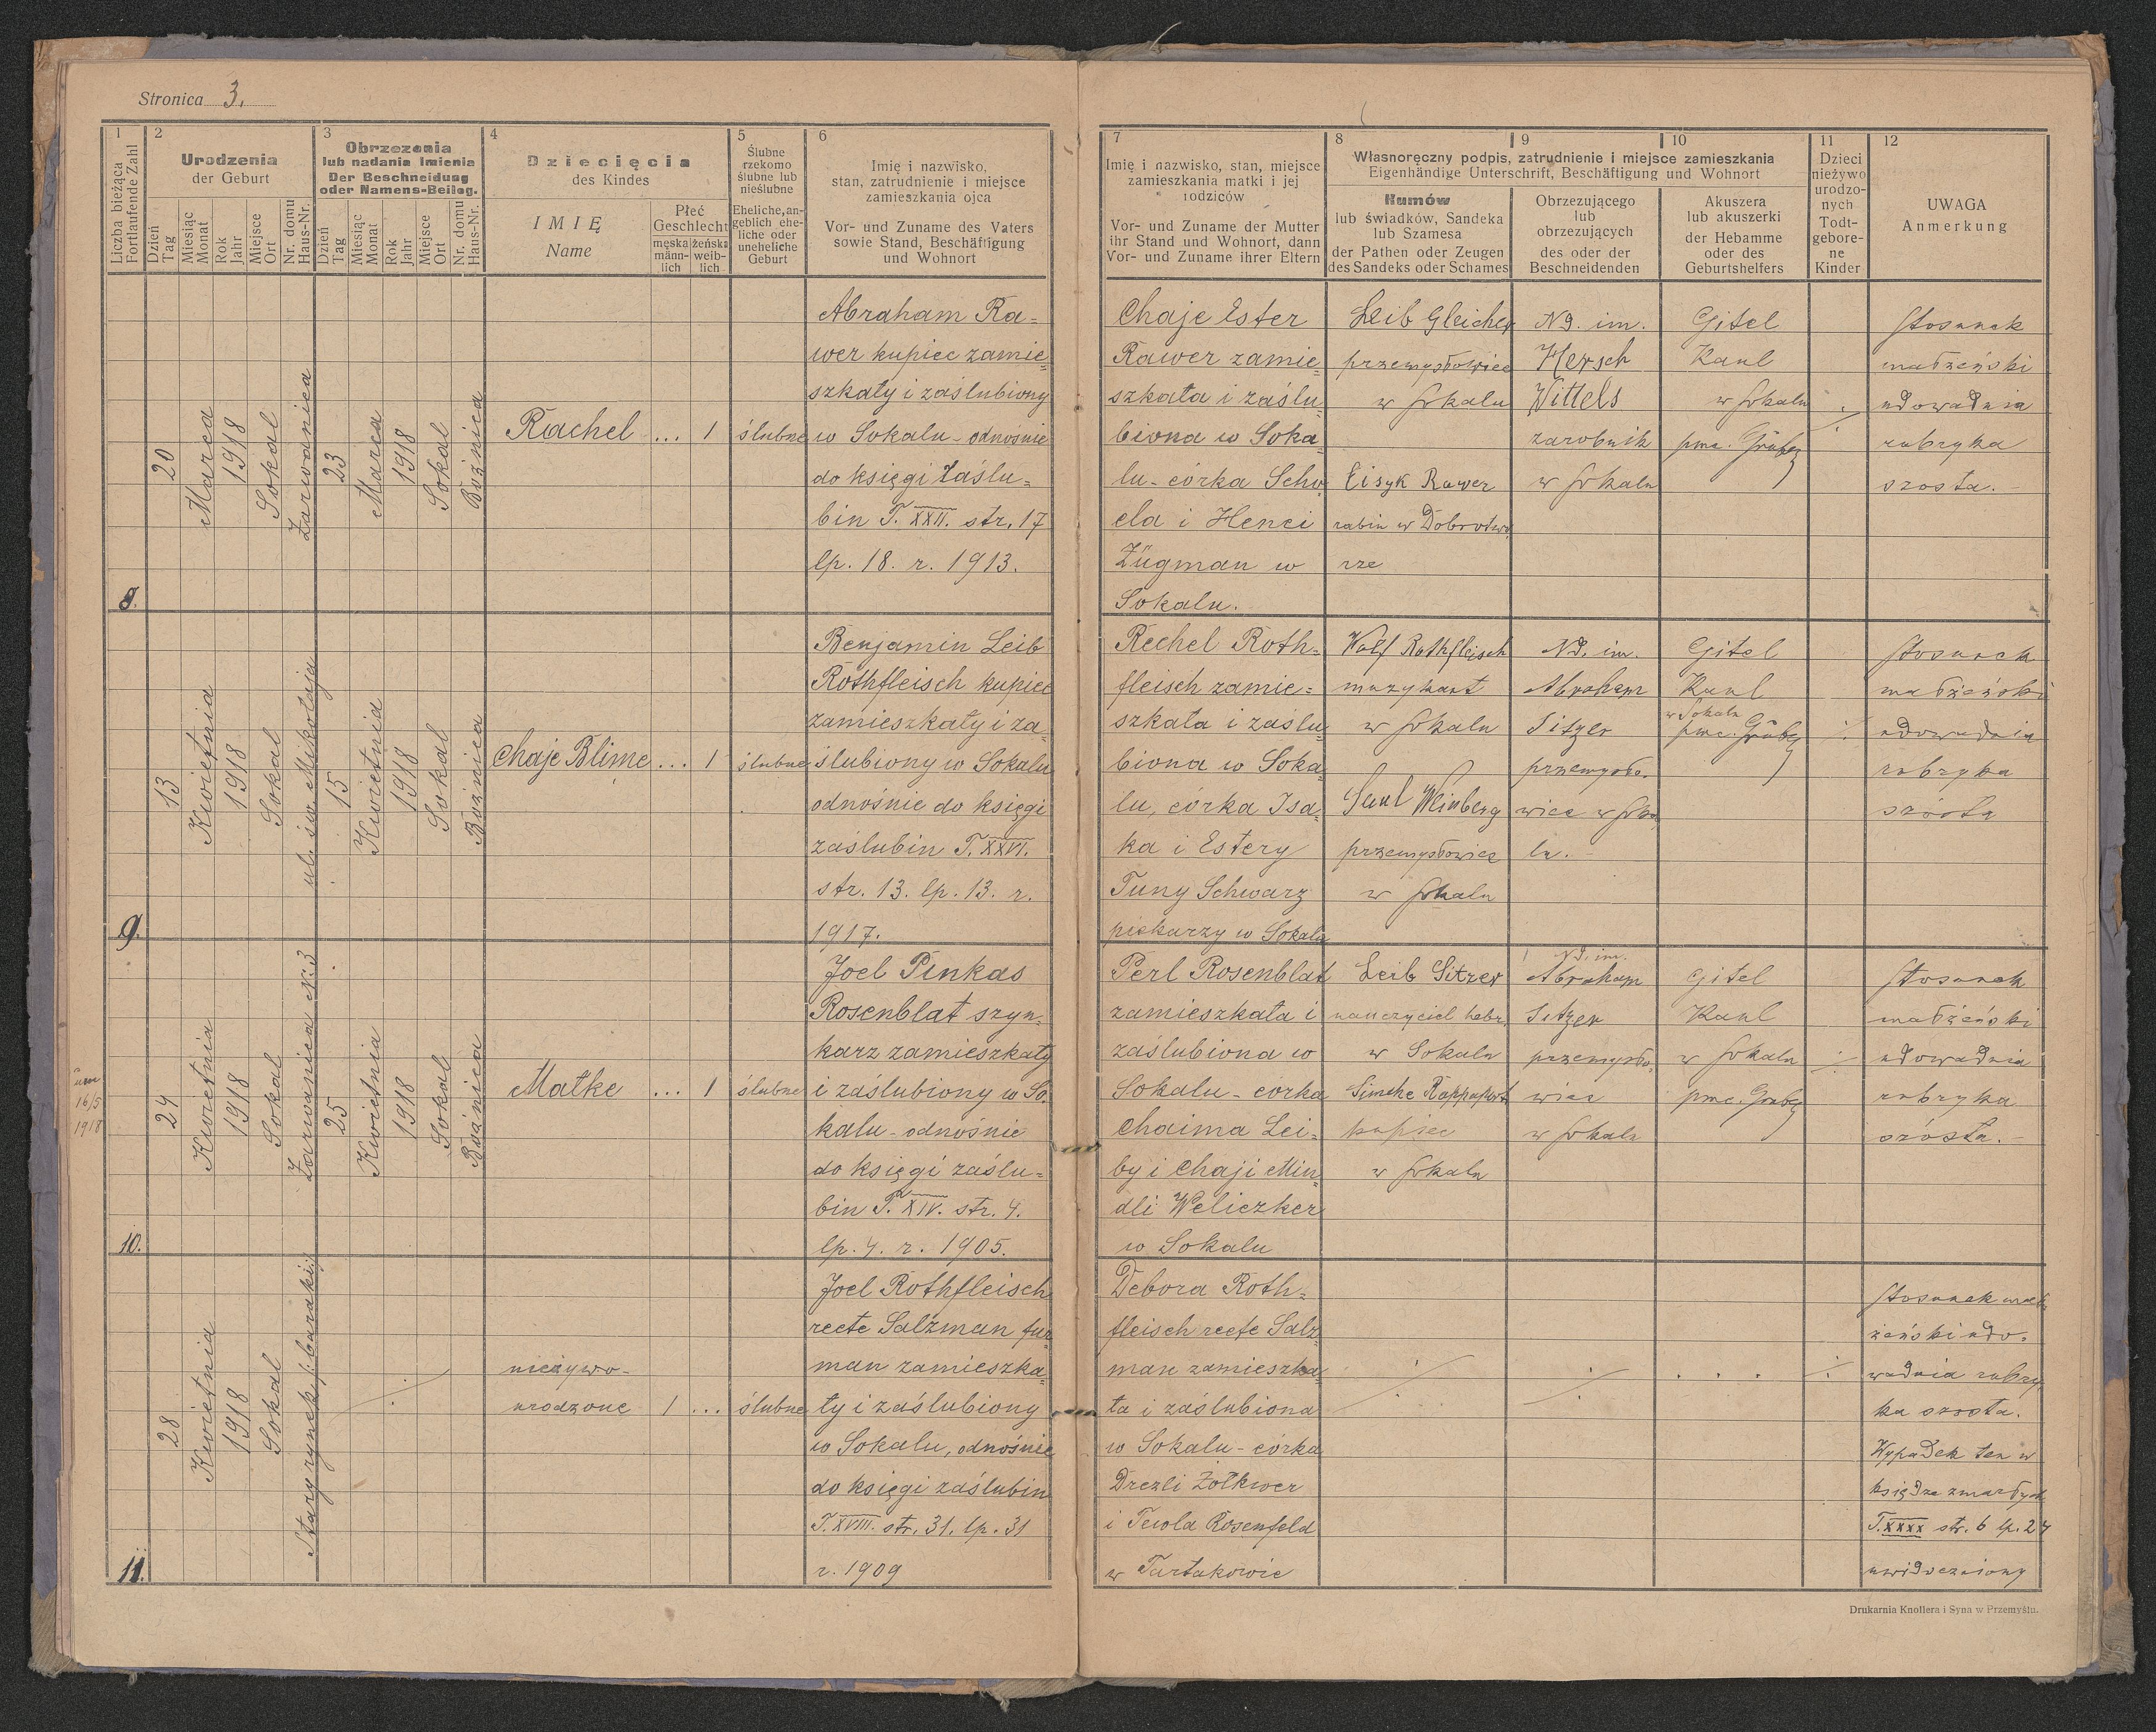 Stronica 3.
1
Liczba bieżąca
Fortlaufende Zahl
2
Urodzenia
der Geburt
Dzień
Tag
Miesiąc
Monat
Rok
Jahr
Miejsce
Ort
Nr. domu
Haus-Nr.
3
Obrzezania
lub nadania Imienia
Der Beschneidung
oder Namens-Beileg.
Dzień
Tag
Miesiąc
Monat
Rok
Jahr
Miejsce
Ort
Nr. domu
Haus-Nr.
4
Dziecięcia
des Kindes
IMIĘ
Name
Płeć
Geschlecht
męska
männ-
lich
żeńska
weib-
lich
5
Ślubne
rzekomo
ślubne lub
nieślubne
Eheliche, an-
geblich ehe-
liche oder
uneheliche
Geburt
6
Imię i nazwisko,
stan, zatrudnienie i miejsce
zamieszkania ojca
Vor- und Zuname des Vaters
sowie Stand, Beschäftigung
und Wohnort
7
Imię i nazwisko, stan, miejsce
zamieszkania matki i jej
rodziców
Vor- und Zuname der Mutter
ihr Stand und Wohnort, dann
Vor- und Zuname ihrer Eltern
8
9
10
Własnoręczny podpis, zatrudnienie i miejsce zamieszkania
Eigenhändige Unterschrift, Beschäftigung und Wohnort
Kumów
lub świadków, Sandeka
lub Szamesa
der Pathen oder Zeugen
des Sandeks oder Schames
Obrzezującego
lub
obrzezujących
des oder der
Beschneidenden
Akuszera
lub akuszerki
der Hebamme
oder des
Geburtshelfers
11
Dzieci
nieżywo
urodzo-
nych
Todt-
gebore-
ne
Kinder
12
UWAGA
Anmerkung
8.
20
Marca
1918
Sokal
Zarwanica
23
Marca
1918
Sokal
Bużnica
Rachel ... 1
ślubne
Abraham Ra=
wer kupiec zamie=
szkały i zaślubiony
w Sokalu - odnośnie
do księgi Zaślu=
bin T. XXII. str. 17
lp. 18. r. 1913.
Chaje Ester
Rawer zamie=
szkała i zaślu=
biona w Soka=
lu - córka Scho
ela i Henci
Zügman w
Sokalu.
Leib Gleicher
przemysłowiec
w Sokalu
Eisyk Rawer
rabin w Dobrotwo
rze
Nd. im.
Hersch
Wittels
zarobnik
w Sokalu
Gitel
Kaul
w Sokalu
Stosunek
małżeński
udowadnia
rubryka
szosta.
9.
13
Kwietnia
1918
Sokal
ul. św. Mikołaja
15
Kwietnia
1918
Sokal
Bużnica
Chaje Blime ... 1
ślubne
Benjamin Leib
Rothfleisch kupiec
zamieszkały i za=
ślubiony w Sokalu
odnośnie do księgi
zaślubin T. XXVI.
str. 13. lp. 13. r.
1917.
Rechel Roth=
fleisch zamie=
szkała i zaślu=
biona w Soka=
lu, córka Isa=
ka i Estery
Tuny Schwarz
piekarzy w Sokalu
Wolf Rothfleisch
muzykant
w Sokalu
Saul Weinberg
przemysłowiec
w Sokalu
Nd. im.
Abraham
Sitzer
przemysło.
wiec w Soka
lu.
Gitel
Kaul
w Sokalu
Stosunek
małżeński
udowadnia
rubryka
szósta
10.
16/5
1918
24
Kwietnia
1918
Sokal
Zarwanica Nr. 3
25
Kwietnia
1918
Sokal
Bużnica
Matke ... 1
ślubne
Joel Pinkas
Rosenblat szyn=
karz zamieszkały
i zaślubiony w So.
kalu - odnośnie
do księgi zaślu=
bin T. XIV. str. 4.
lp. 4. r. 1905.
Perl Rosenblat
zamieszkała i
zaślubiona w
Sokalu - corka
Chaima Lei=
by i Chaji Min=
dli Weliczker
w Sokalu
Leib Sitzer
nauczyciel hebr.
w Sokalu
Simche Rappaport
kupiec
w Sokalu
Nd. im.
Abraham
Sitzer
przemysło.
wiec
w Sokalu
Gitel
Kaul
w Sokalu
Stosunek
małżeński
udowadnia
rubryka
szósta.
11.
28
Kwietnia
1918
Sokal
Stary rynek /: baraki :/
nieżywo-
urodzone 1 ...
ślubne
Joel Rothfleisch
recte Salzman fur
man zamieszka=
ły i zaślubiony
w Sokalu, odnośnie
do księgi zaślubin
T. XVIII. str. 31. lp. 31
r. 1909
Debora Roth=
fleisch recte Salz=
man zamieszka=
ła i zaślubiona
w Sokalu - córka
Drezli Żołkwer
i Tewla Rosenfeld
w Tartakowie
Stosunek mał=
żeński udo.
wadnia rubry
ka szosta.
Wypadek ten w
księdze zmarłych
T. XXXX str. 6 lp. 24
uwidoczniony
Drukarnia Knollera i Syna w Przemyślu.